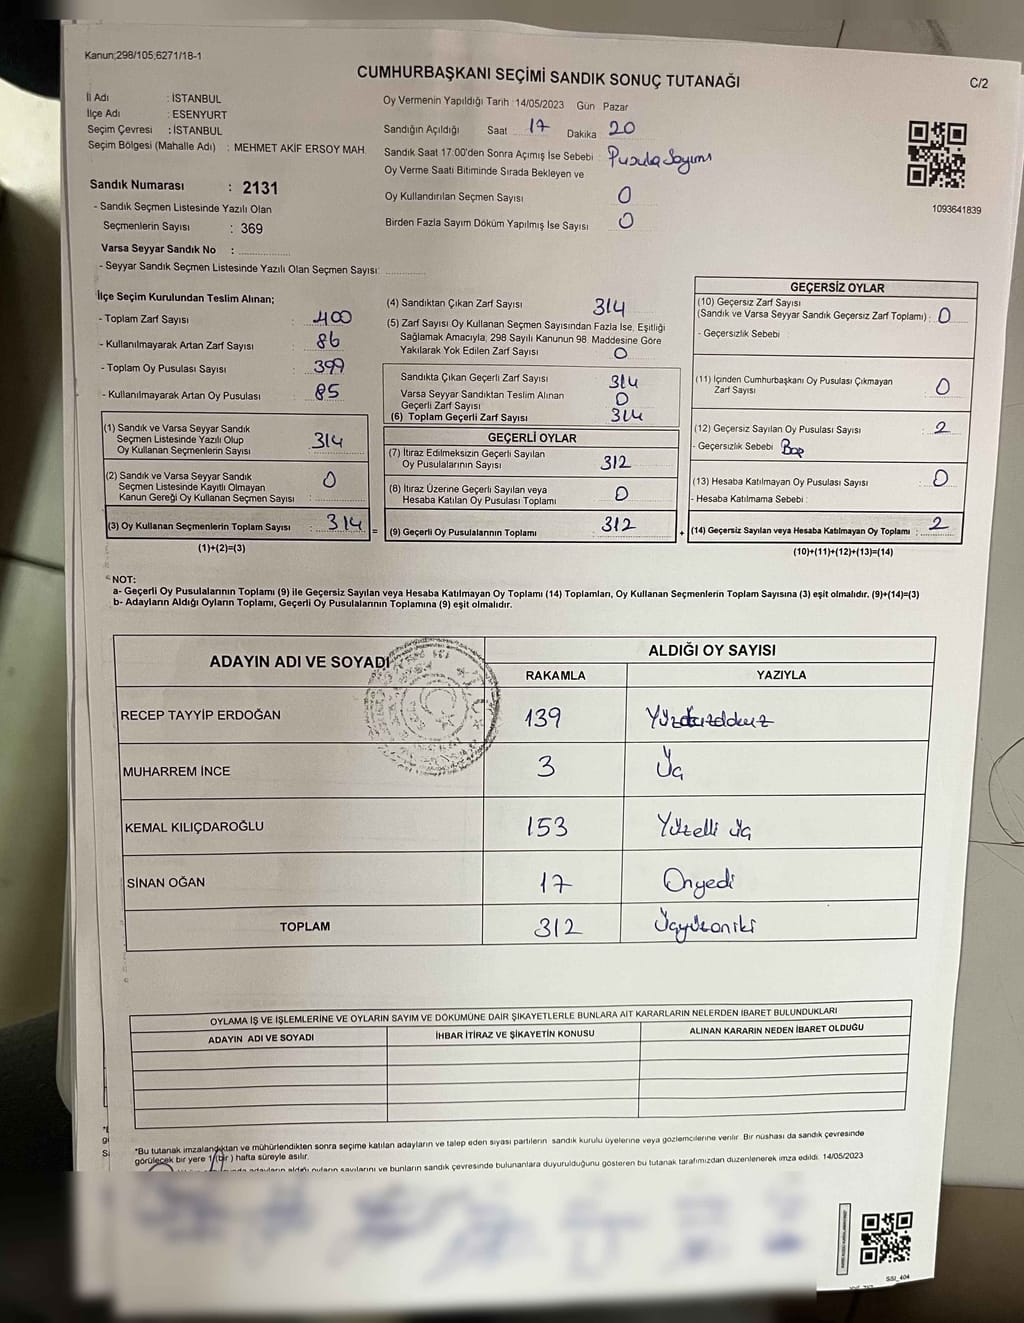 Kanun;298/105;6271/18-1
CUMHURBAŞKANI SEÇİMİ SANDIK SONUÇ TUTANAĞI
C/2
İl Adı : İSTANBUL
İlçe Adı : ESENYURT
Seçim Çevresi : İSTANBUL
Seçim Bölgesi (Mahalle Adı) : MEHMET AKİF ERSOY MAH.
Oy Vermenin Yapıldığı Tarih : 14/05/2023 Gün : Pazar
Sandığın Açıldığı Saat 17 Dakika 20
Sandık Saat 17:00'den Sonra Açımış İse Sebebi : Pusula Sayımı
Oy Verme Saati Bitiminde Sırada Bekleyen ve
Oy Kullandırılan Seçmen Sayısı 0
Birden Fazla Sayım Döküm Yapılmış İse Sayısı 0
1093641839
Sandık Numarası : 2131
- Sandık Seçmen Listesinde Yazılı Olan
Seçmenlerin Sayısı : 369
Varsa Seyyar Sandık No :
- Seyyar Sandık Seçmen Listesinde Yazılı Olan Seçmen Sayısı:
İlçe Seçim Kurulundan Teslim Alınan;
- Toplam Zarf Sayısı : 400
- Kullanılmayarak Artan Zarf Sayısı : 86
- Toplam Oy Pusulası Sayısı : 399
- Kullanılmayarak Artan Oy Pusulası : 85
(1) Sandık ve Varsa Seyyar Sandık
Seçmen Listesinde Yazılı Olup
Oy Kullanan Seçmenlerin Sayısı : 314
(2) Sandık ve Varsa Seyyar Sandık
Seçmen Listesinde Kayıtlı Olmayan
Kanun Gereği Oy Kullanan Seçmen Sayısı : 0
(3) Oy Kullanan Seçmenlerin Toplam Sayısı : 314 =
(1)+(2)=(3)
(4) Sandıktan Çıkan Zarf Sayısı 314
(5) Zarf Sayısı Oy Kullanan Seçmen Sayısından Fazla İse, Eşitliği
Sağlamak Amacıyla; 298 Sayılı Kanunun 98. Maddesine Göre
Yakılarak Yok Edilen Zarf Sayısı 0
Sandıkta Çıkan Geçerli Zarf Sayısı 314
Varsa Seyyar Sandıktan Teslim Alınan
Geçerli Zarf Sayısı 0
(6) Toplam Geçerli Zarf Sayısı 314
GEÇERLİ OYLAR
(7) İtiraz Edilmeksizin Geçerli Sayılan
Oy Pusulalarının Sayısı 312
(8) İtiraz Üzerine Geçerli Sayılan veya
Hesaba Katılan Oy Pusulası Toplamı 0
(9) Geçerli Oy Pusulalarının Toplamı 312 +
GEÇERSİZ OYLAR
(10) Geçersiz Zarf Sayısı
(Sandık ve Varsa Seyyar Sandık Geçersiz Zarf Toplamı) : 0
- Geçersizlik Sebebi :
(11) İçinden Cumhurbaşkanı Oy Pusulası Çıkmayan
Zarf Sayısı 0
(12) Geçersiz Sayılan Oy Pusulası Sayısı : 2
- Geçersizlik Sebebi : Boş
(13) Hesaba Katılmayan Oy Pusulası Sayısı : 0
- Hesaba Katılmama Sebebi :
(14) Geçersiz Sayılan veya Hesaba Katılmayan Oy Toplamı : 2
(10)+(11)+(12)+(13)=(14)
NOT:
a- Geçerli Oy Pusulalarının Toplamı (9) ile Geçersiz Sayılan veya Hesaba Katılmayan Oy Toplamı (14) Toplamları, Oy Kullanan Seçmenlerin Toplam Sayısına (3) eşit olmalıdır. (9)+(14)=(3)
b- Adayların Aldığı Oyların Toplamı, Geçerli Oy Pusulalarının Toplamına (9) eşit olmalıdır.
ADAYIN ADI VE SOYADI
ALDIĞI OY SAYISI
RAKAMLA YAZIYLA
RECEP TAYYİP ERDOĞAN 139 Yüzotuzdokuz
MUHARREM İNCE 3 Üç
KEMAL KILIÇDAROĞLU 153 Yüzelli üç
SİNAN OĞAN 17 Onyedi
TOPLAM 312 Üçyüzoniki
OYLAMA İŞ VE İŞLEMLERİNE VE OYLARIN SAYIM VE DÖKÜMÜNE DAİR ŞİKAYETLERLE BUNLARA AİT KARARLARIN NELERDEN İBARET BULUNDUKLARI
ADAYIN ADI VE SOYADI İHBAR İTİRAZ VE ŞİKAYETİN KONUSU ALINAN KARARIN NEDEN İBARET OLDUĞU
*Bu tutanak imzalandıktan ve mühürlendikten sonra seçime katılan adayların ve talep eden siyasi partilerin sandık kurulu üyelerine veya gözlemcilerine verilir. Bir nüshası da sandık çevresinde
görülecek bir yere 1 (bir) hafta süreyle asılır.
adayların aldığı oyların sayılarını ve bunların sandık çevresinde bulunanlara duyurulduğunu gösteren bu tutanak tarafımızdan düzenlenerek imza edildi. 14/05/2023
SSI_404